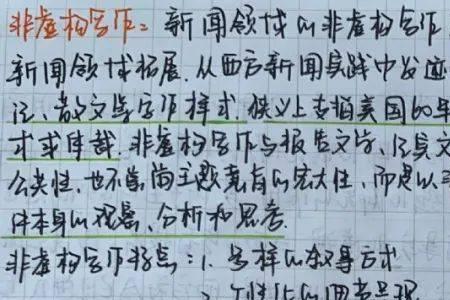 非虚构写作：新闻领域的非虚构写作
新闻领域拓展.从西方新闻实践中发迹
记、散文等写作样式.狭义上专指美国60年
式或体裁.非虚构写作与报告文学、
公共性,也不等同主题宽宏大性,而是以
件本身的观察、分析和思考.
非虚构写作特点：1.多样的叙事方式
2.个性化的